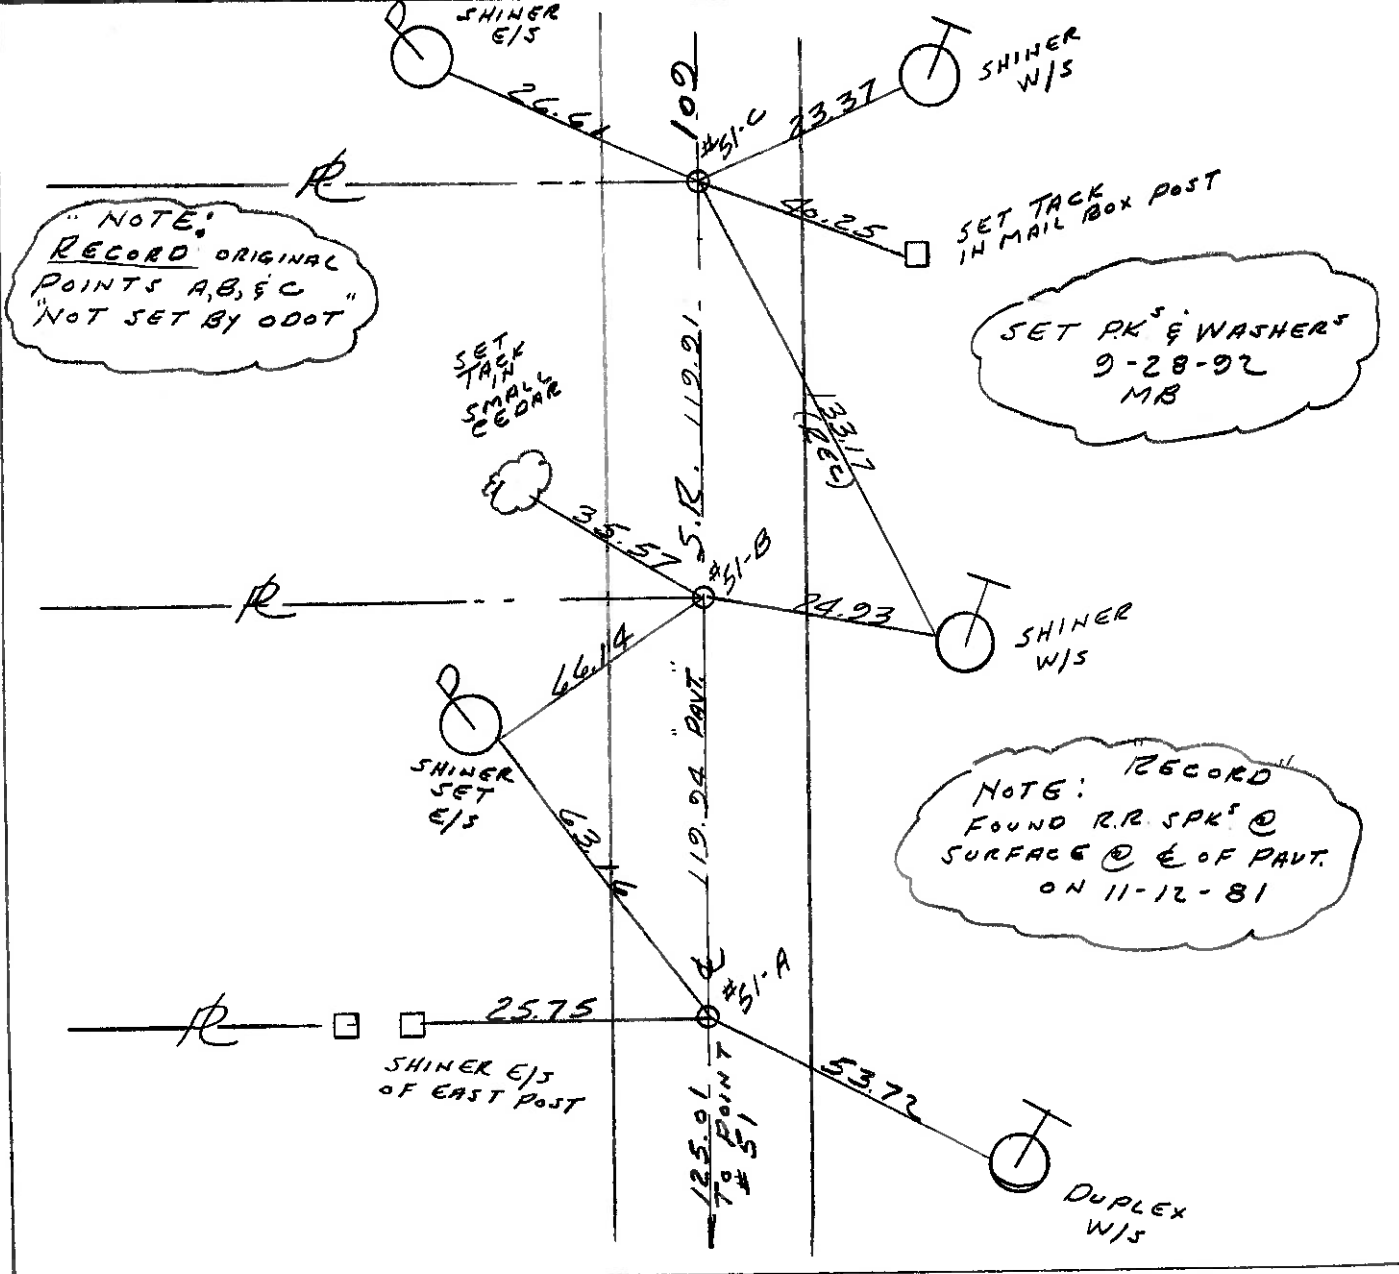 SHINER
E/S
SHINER
W/S
109
#51-C
23.37
PL
40.25
SET TACK
IN MAIL BOX POST
"NOTE:
RECORD ORIGINAL
POINTS A, B, & C
"NOT SET BY ODOT"
SET P.K'S & WASHERS
9-28-92
MB
SET
TACK
IN
SMALL
CEDAR
S.R. 119.91
133.17
(REC)
35.57
#51-B
PL
24.93
SHINER
W/S
66.14
"PAVT."
119.94
SHINER
SET
E/S
63.14
NOTE: "RECORD"
FOUND R.R. SPK'S @
SURFACE @ ℄ OF PAVT.
ON 11-12-81
℄
#51-A
PL
25.75
SHINER E/S
OF EAST POST
53.72
125.01
TO POINT
#51
DUPLEX
W/S